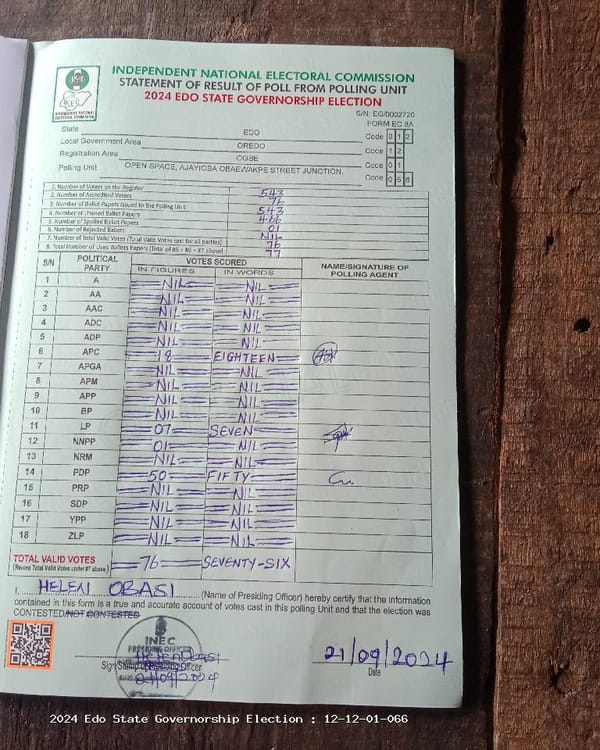 INDEPENDENT NATIONAL ELECTORAL COMMISSION
STATEMENT OF RESULT OF POLL FROM POLLING UNIT
2024 EDO STATE GOVERNORSHIP ELECTION
S/N: EG/0002720
FORM EC 8A
State EDO Code 0 1 2
Local Government Area OREDO Code 1 2
Registration Area OGBE Code 0 1
Polling Unit OPEN SPACE, AJAYIOBA OBAEWAKPE STREET JUNCTION. Code 0 6 6
1. Number of Voters on the Register 543
2. Number of Accredited Voters 76
3. Number of Ballot Papers Issued to the Polling Unit 543
4. Number of Unused Ballot Papers 466
5. Number of Spoiled Ballot Papers 01
6. Number of Rejected Ballots NIL
7. Number of Total Valid Votes (Total Valid Votes cast for all parties) 76
8. Total Number of Used Ballots Papers (Total of #5 + #6 + #7 above) 77
S/N POLITICAL PARTY VOTES SCORED NAME/SIGNATURE OF POLLING AGENT
IN FIGURES IN WORDS
1 A NIL NIL
2 AA NIL NIL
3 AAC NIL NIL
4 ADC NIL NIL
5 ADP NIL NIL
6 APC 18 EIGHTEEN
7 APGA NIL NIL
8 APM NIL NIL
9 APP NIL NIL
10 BP NIL NIL
11 LP 07 SEVEN
12 NNPP 01 NIL
13 NRM NIL NIL
14 PDP 50 FIFTY
15 PRP NIL NIL
16 SDP NIL NIL
17 YPP NIL NIL
18 ZLP NIL NIL
TOTAL VALID VOTES 76 SEVENTY-SIX
(Record Total Valid Votes under #7 above)
I, HELEN OBASI (Name of Presiding Officer) hereby certify that the information
contained in this form is a true and accurate account of votes cast in this polling Unit and that the election was
CONTESTED/NOT CONTESTED
INEC
PRESIDING OFFICER
21/09/2024
21/09/2024
Date
2024 Edo State Governorship Election : 12-12-01-066